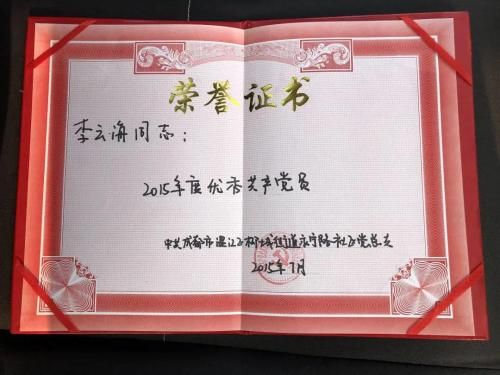 荣誉证书
李云海同志：
2015年度优秀共产党员
中共成都市温江区柳城街道永宁路社区党总支
2015年7月